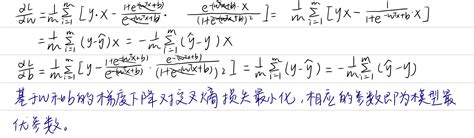 ∂L/∂w = 1/m Σ(i=1..m) [y·x - (1+e^-(w^Tx+b))/(e^-(w^Tx+b)) · (e^-(w^Tx+b)·x)/(1+e^-(w^Tx+b))²] = 1/m Σ(i=1..m) [yx - 1/(1+e^-(w^Tx+b))·x]
= 1/m Σ(i=1..m) (y-ŷ)x = -1/m Σ(i=1..m) (ŷ-y)x
∂L/∂b = 1/m Σ(i=1..m) [y - (1+e^-(w^Tx+b))/(e^-(w^Tx+b)) · (e^-(w^Tx+b))/(1+e^-(w^Tx+b))²] = 1/m Σ(i=1..m) (y-ŷ) = -1/m Σ(i=1..m) (ŷ-y)
基于w和b的梯度下降对交叉熵损失最小化，相应的参数即为模型最
优参数。